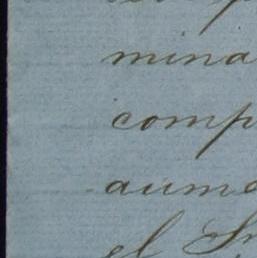 mina
comp
aume
el Sr